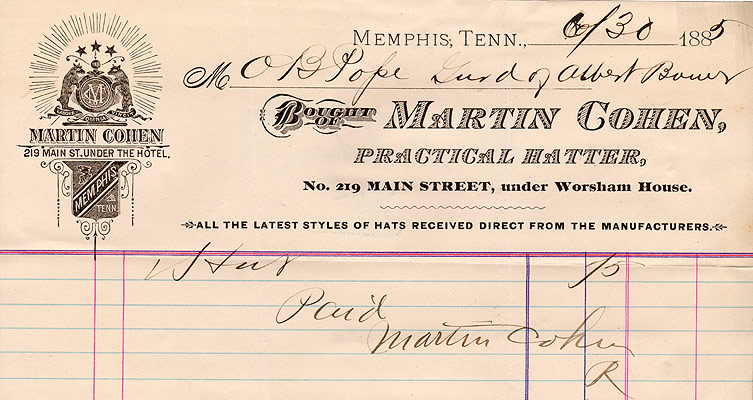 MEMPHIS, TENN., 6/30 1885
M O B Pope Gurd of Albert Bower
BOUGHT OF MARTIN COHEN,
PRACTICAL HATTER,
No. 219 MAIN STREET, under Worsham House.
ALL THE LATEST STYLES OF HATS RECEIVED DIRECT FROM THE MANUFACTURERS.
M
OMNIA
MARTIN COHEN
219 MAIN ST. UNDER THE HOTEL,
MEMPHIS
TENN.
1 Hat
Paid
Martin Cohen
R